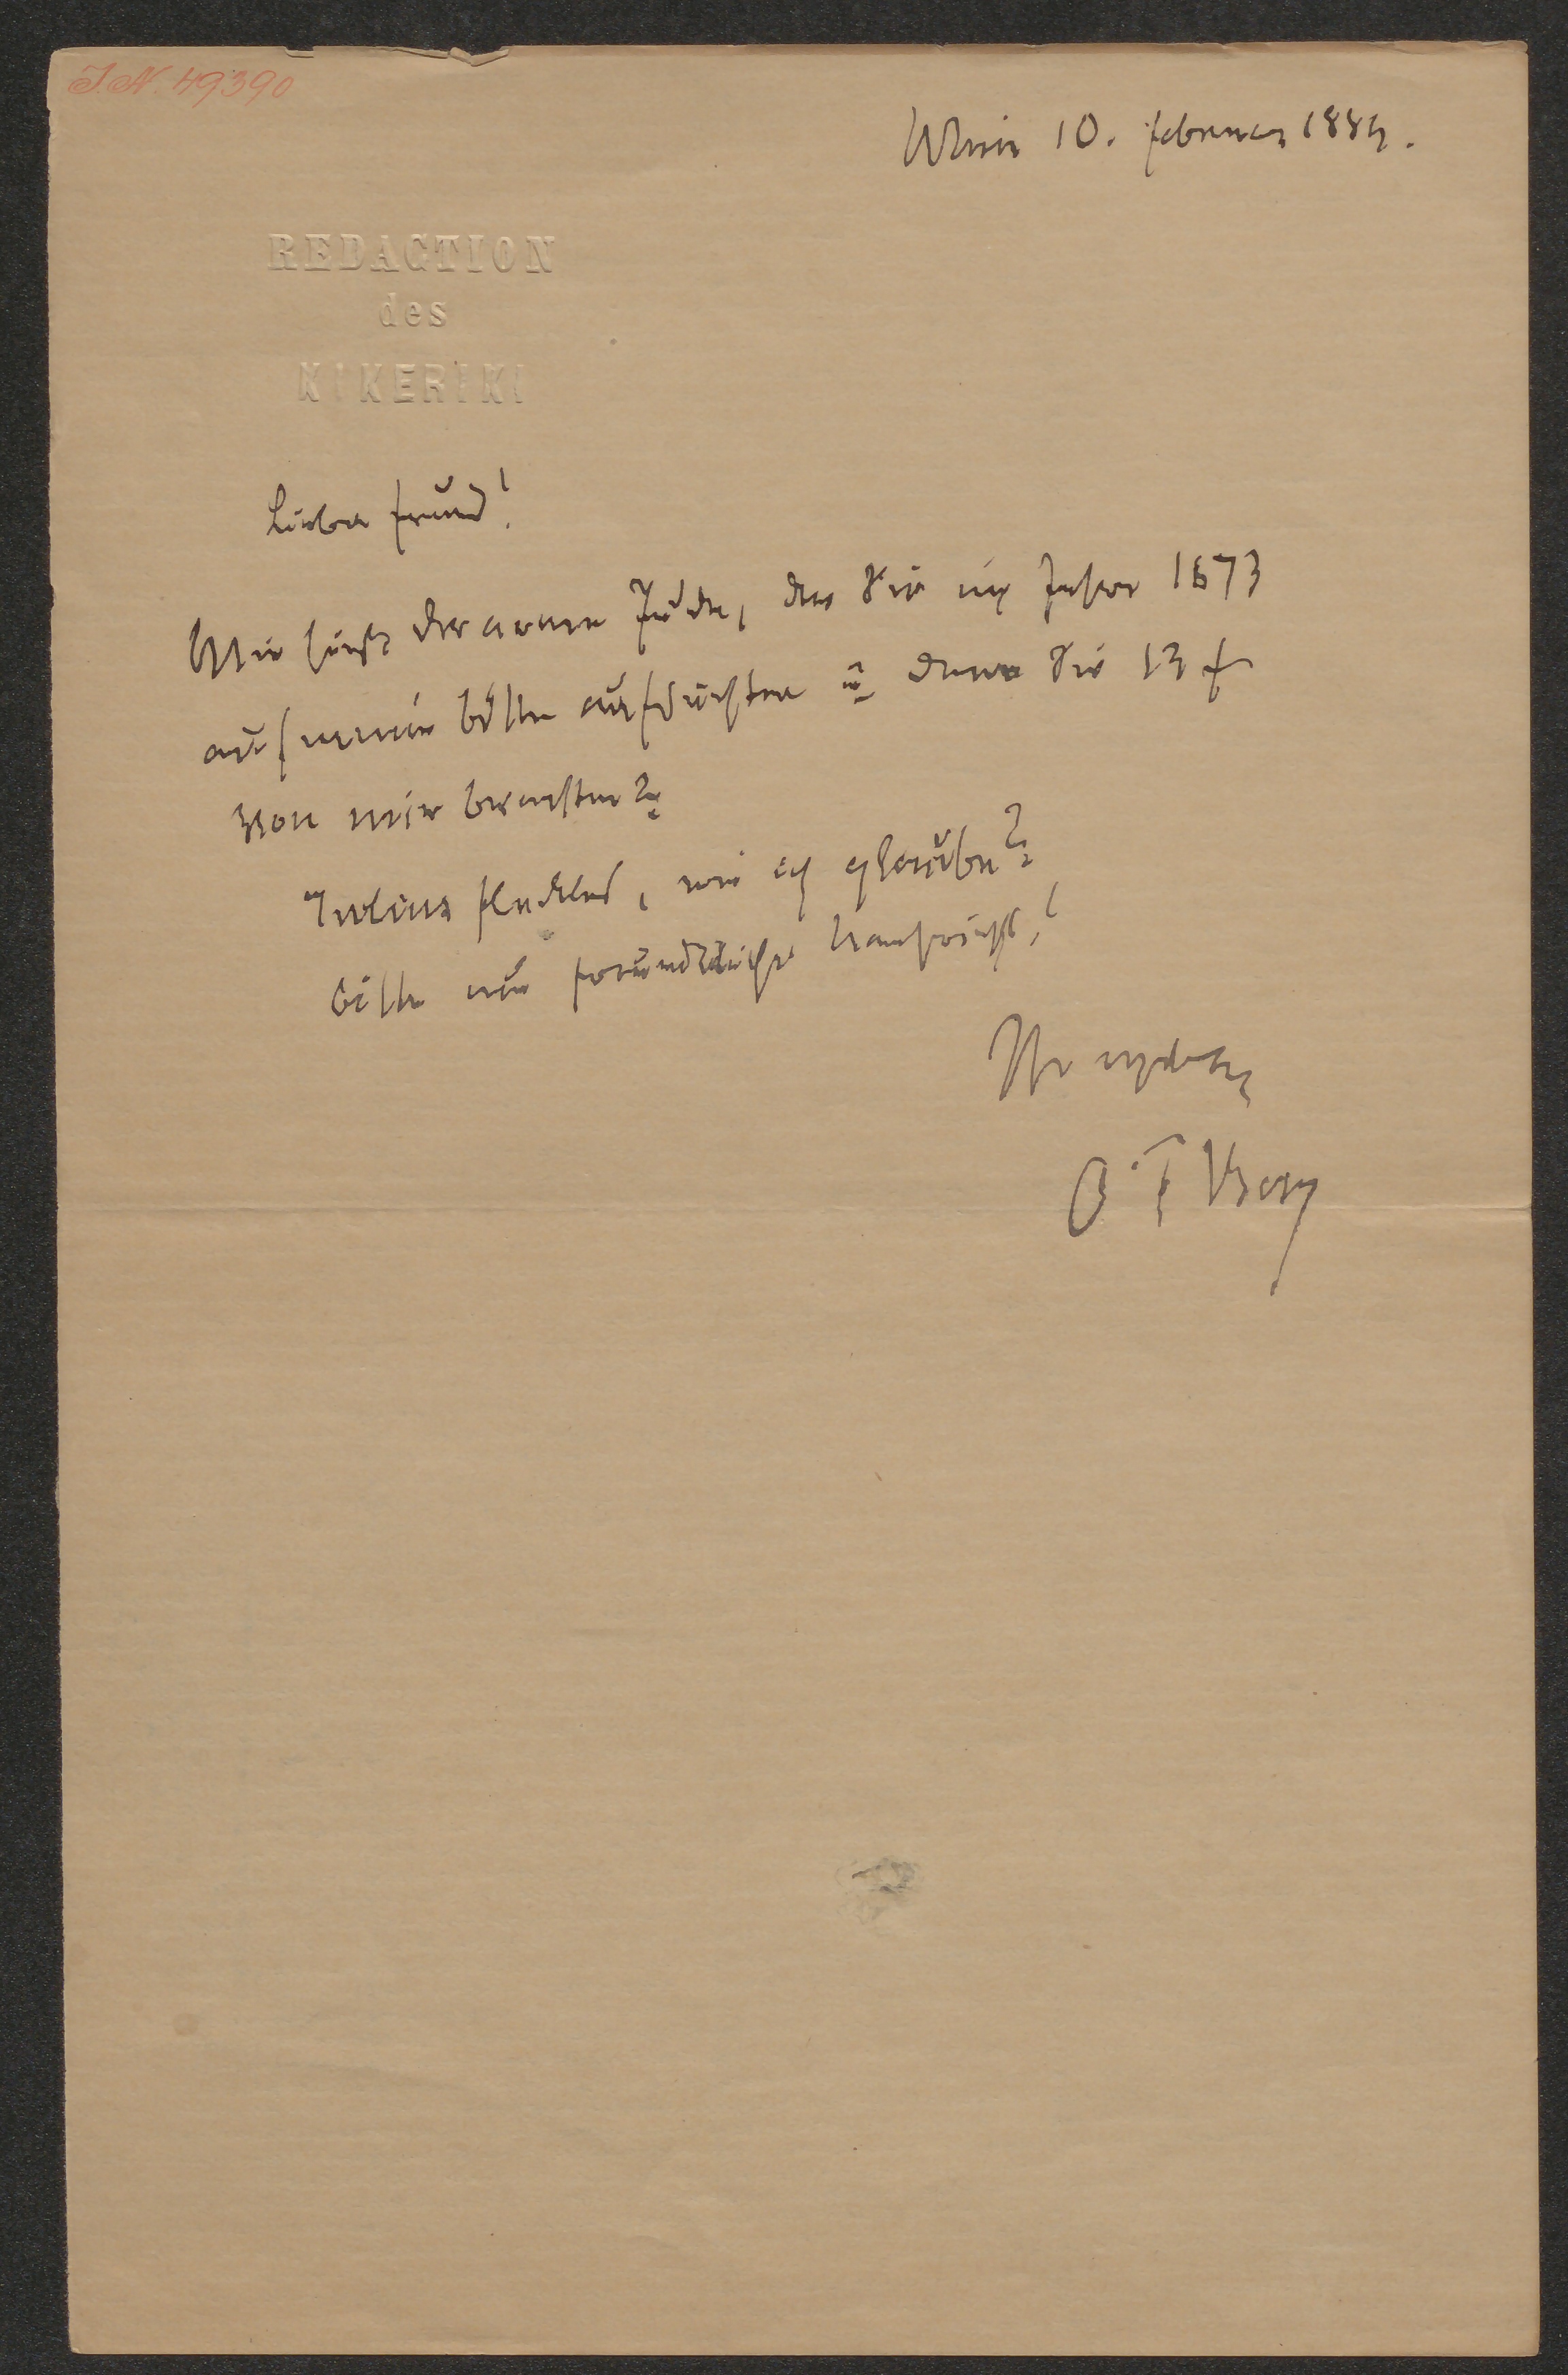 I.N. 49390
Wien 10. Februar 1884.
REDACTION
des
KIKERIKI
Lieber Freund!
Wie hieß der arme Jude, den Sie im Jahre 1873
auf meine Bitte aufsuchten u dem Sie 13 f
von mir brachten?
Julius, wie ich glaube?
Bitte um freundliche Nachricht!
Ihr ergebener
O F Berg